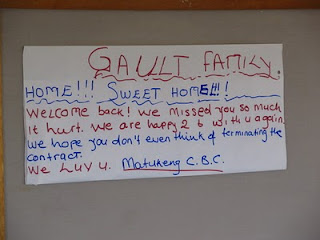 GAULT FAMILY.
HOME!!! SWEET HOME!!!
WELCOME back! we missed you so much
it hurt. we are happy 2 b with u again.
we hope you don't even think of terminating the
contract.
We Luv u. Matukeng C.B.C.